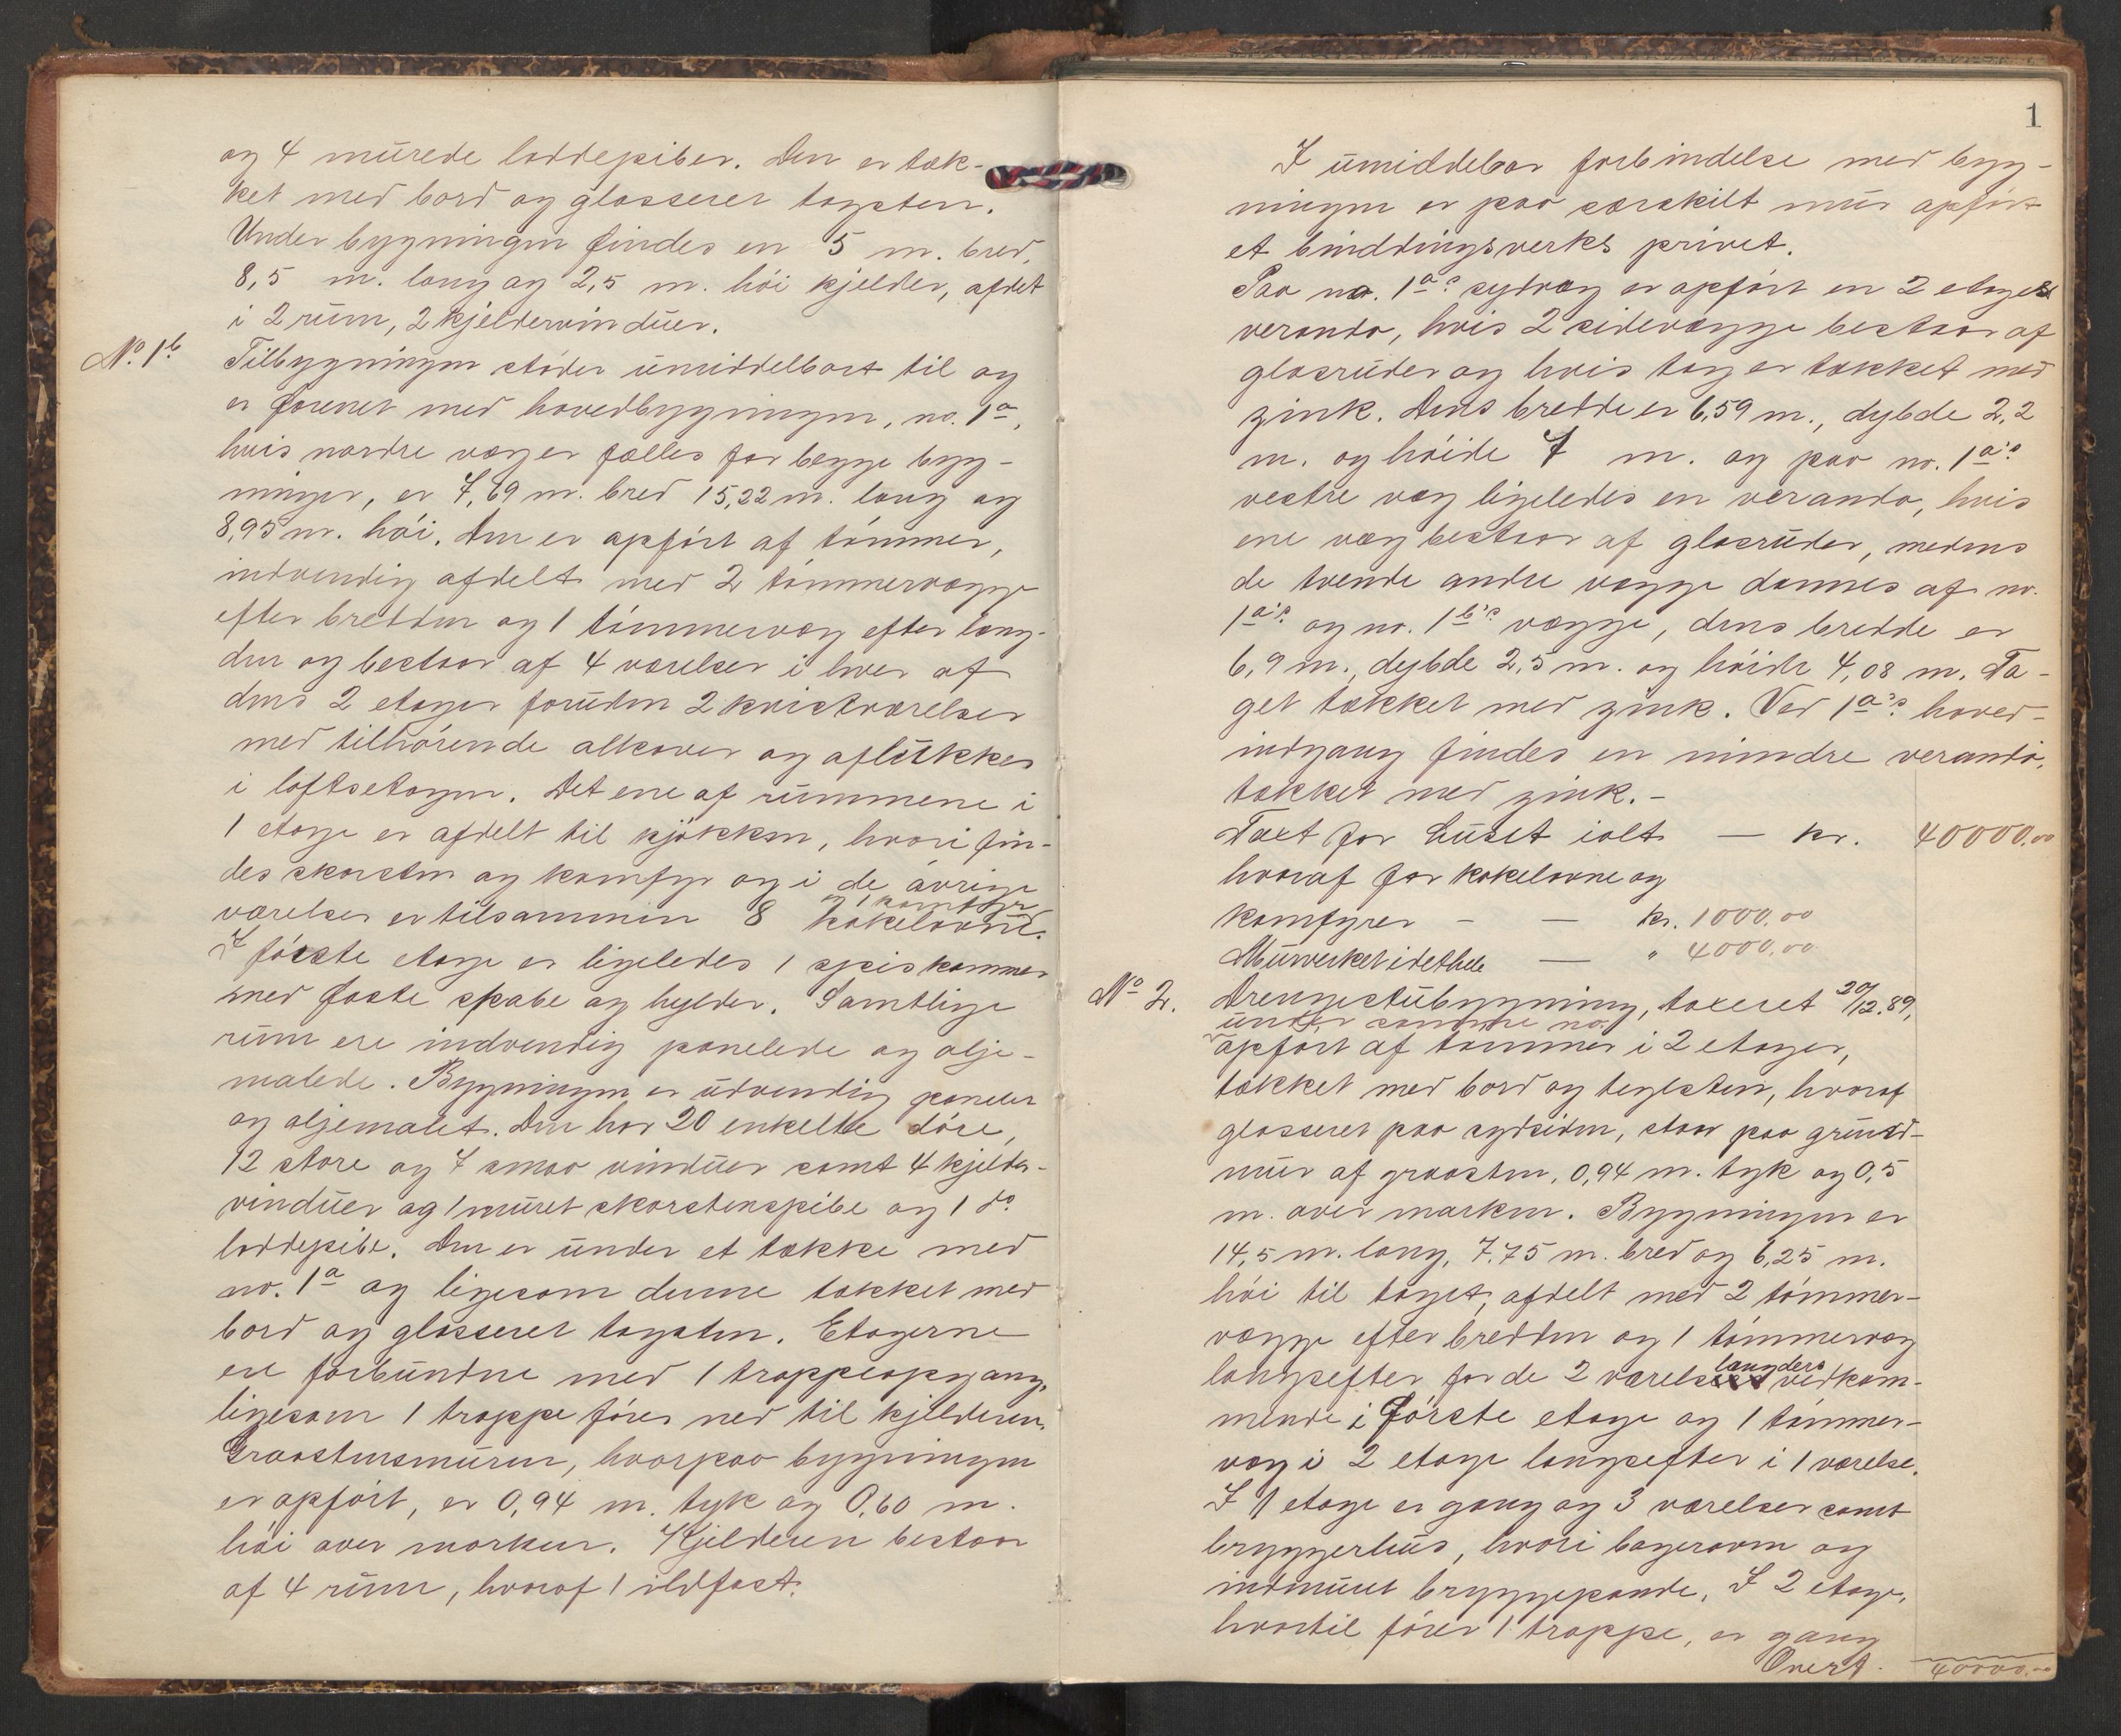 og 4 murede loddepiber. Den er tæk-
ket med bord og glasseret tagsten.
Under bygningen findes en 5 m. bred,
8,5 m. lang og 2,5 m. høi kjelder, afdelt
i 2 rum, 2 kjeldervinduer.
No. 1b Tilbygningen støder umiddelbart til og
er forenet med hovedbygningen, no. 1a,
hvis nordre væg er fælles for begge byg-
ninger, er 7,69 m. bred 15,22 m. lang og
8,95 m. høi. Den er opført af tømmer,
indvendig afdelt med 2 tømmervægge
efter bredden og 1 tømmervæg efter læng-
den og bestaar af 4 værelser i hver af
dens 2 etager foruden 2 kvistværelser
med tilhørende alkover og aflukker
i loftsetagen. Det ene af rummene i
1 etage er afdelt til kjøkken, hvori fin-
des skorsten og komfyr og i de øvrige
og 1 komfyr
værelser er tilsammen 8 kakelovne.
I første etage er ligeledes 1 spiskammer
med faste skabe og hylder. Samtlige
rum ere indvendig panelede og olje-
malede. Bygningen er udvendig panelet
og oljemalet. Den har 20 enkelte døre,
12 store og 7 smaa vinduer samt 4 kjelder-
vinduer og 1 muret skorstenspibe og 1 do
loddepibe. Den er under et tække med
no. 1a og ligesom denne tækket med
bord og glasseret tagsten. Etagerne
ere forbundne med 1 trappeopgang,
ligesom 1 trappe fører ned til kjelderen.
Graastensmuren, hvorpaa bygningen
er opført, er 0,94 m. tyk og 0,60 m.
høi over marken. Kjelderen bestaar
af 4 rum, hvoraf 1 ildfast.
1
I umiddelbar forbindelse med byg-
ningen er paa særskilt mur opført
et bindingsverks privet.
Paa no. 1a's sydvæg er opført en 2 etages
veranda, hvis 2 sidevægge bestaar af
glasruder og hvis tag er tækket med
zink. Dens bredde er 6,59 m., dybde 2,2
m. og høide 7 m. og paa no. 1a's
vestre væg ligeledes en veranda, hvis
ene væg bestaar af glasruder, medens
de tvende andre vægge dannes af no.
1a's og no. 1b's vægge, dens bredde er
6,9 m., dybde 2,5 m. og høide 4,08 m. Ta-
get tækket med zink. Ved 1a's hoved-
indgang findes en mindre veranda,
tækket med zink. -
Taxt for huset ialt — kr. 40000.00
hvoraf for kakelovne og
komfyrer - — kr. 1000.00
Murverket i det hele — " 4000.00
No 2. Drengestubygning, taxeret 20/12.89,
under samme no.
opført af tømmer i 2 etager,
tækket med bord og teglsten, hvoraf
glasseret paa sydsiden, staar paa grund-
mur af graasten, 0,94 m. tyk og 0,5
m. over marken. Bygningen er
14,5 m. lang, 7,75 m. bred og 6,25 m.
høi til taget, afdelt med 2 tømmer-
vægge efter bredden og 1 tømmervæg
længders
langsefter for de 2 værelsers vedkom-
mende i første etage og 1 tømmer-
væg i 2 etage langsefter i 1 værelse.
I 1 etage er gang og 3 værelser samt
bryggerhus, hvori bagerovn og
indmuret bryggepande. I 2 etage,
hvortil fører 1 trappe, er gang
Overf. 40000.00